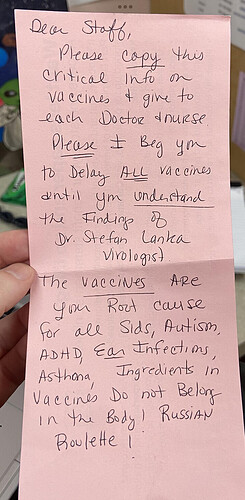 Dear Staff,
Please copy this
critical info on
vaccines & give to
each Doctor & nurse
Please I Beg you
to Delay ALL vaccines
until you understand
the Findings of
Dr. Stefan Lanka
Virologist
The vaccines ARE
your Root cause
for all Sids, Autism,
ADHD, Ear Infections,
Asthma, Ingredients in
Vaccines Do not Belong
in the Body! RUSSIAN
Roulette!